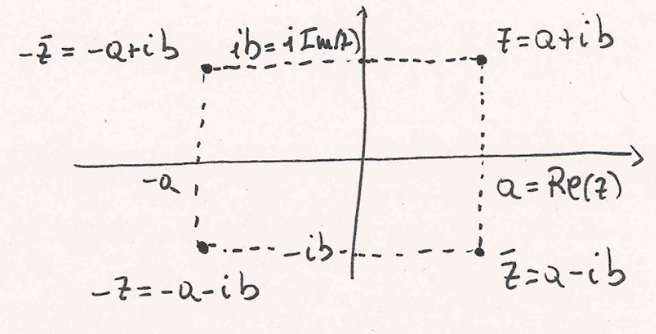 -z̄ = -a+ib
ib = i Im(z)
z = a+ib
-a
a = Re(z)
-ib
-z = -a-ib
z̄ = a-ib